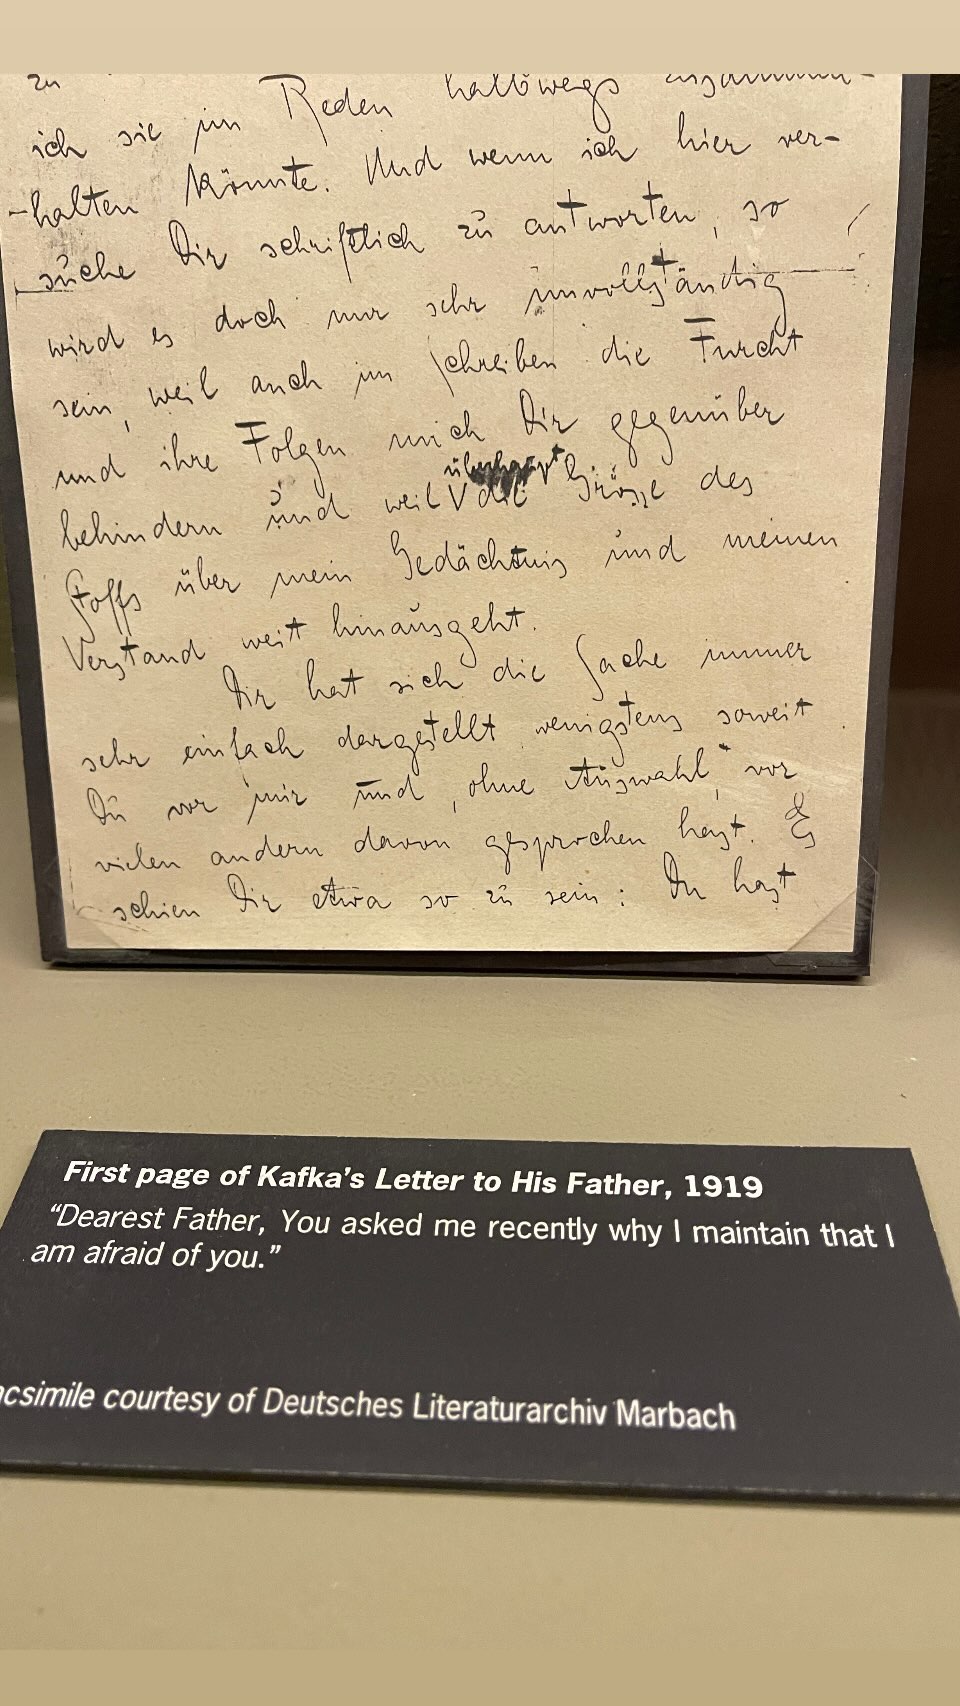 zu
ich sie im Reden halbwegs zusammen-
halten könnte. Und wenn ich hier ver-
suche Dir schriftlich zu antworten, so
wird es doch nur sehr unvollständig
sein, weil auch im Schreiben die Furcht
und ihre Folgen mich Dir gegenüber
behindern und weil überhaupt die Grösse des
Stoffs über mein Gedächtnis und meinen
Verstand weit hinausgeht.
Dir hat sich die Sache immer
sehr einfach dargestellt wenigstens soweit
Du vor mir und, ohne Auswahl, vor
vielen andern davon gesprochen hast. Es
schien Dir etwa so zu sein: Du hast
First page of Kafka's Letter to His Father, 1919
"Dearest Father, You asked me recently why I maintain that I
am afraid of you."
acsimile courtesy of Deutsches Literaturarchiv Marbach